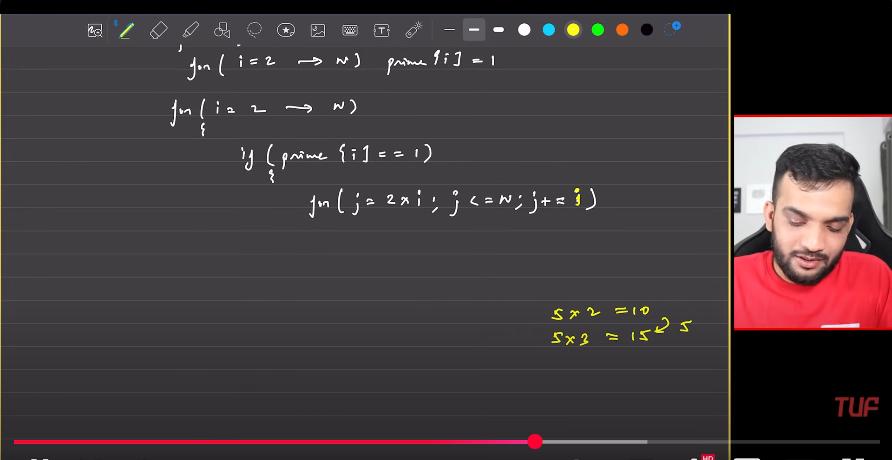 for( i = 2 → N) prime[i] = 1
for( i = 2 → N)
{
if (prime[i] == 1)
{
for( j = 2 x i ; j <= N; j += i )
5 x 2 = 10
5 x 3 = 15 5
TUF
HD